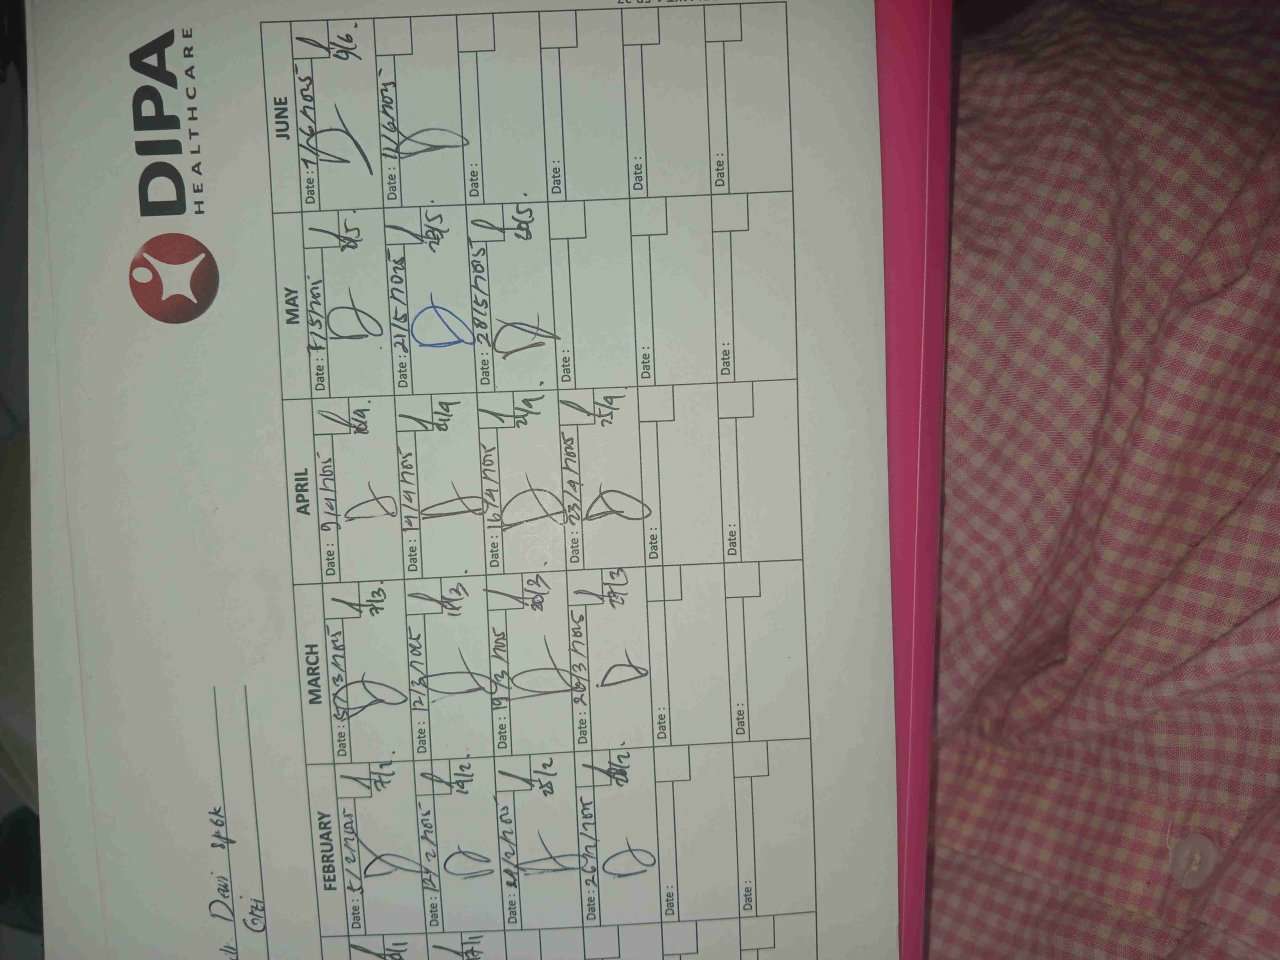 DIPA
HEALTHCARE
Dewi
FEBRUARY MARCH APRIL MAY JUNE
Date: 5/2/2025 Date: 5/3/2025 Date: 9/4/2025 Date: 7/5/2025 Date: 4/6/2025
7/2. 7/3. 10/4. 8/5. 9/6.
Date: 12/2/2025 Date: 12/3/2025 Date: 14/4/2025 Date: 21/5/2025 Date: 11/6/2025
19/2. 18/3. 23/5.
Date: Date: 19/3/2025 Date: 16/4/2025 Date: 28/5/2025 Date:
25/2 20/3. 30/5.
Date: 26/2/2025 Date: 26/3/2025 Date: 23/4/2025 Date: Date:
28/2. 27/3 25/4
Date: Date: Date: Date: Date:
Date: Date: Date: Date: Date: